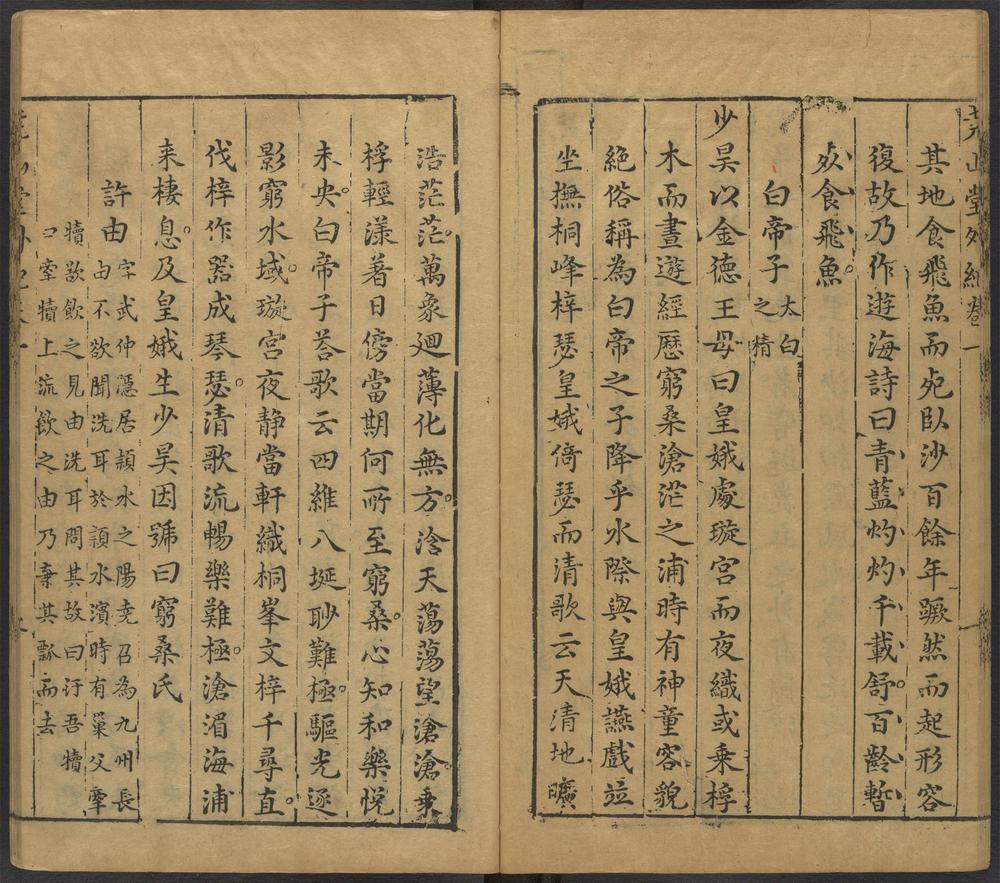 堯山堂外紀卷一
其地食飛魚而死臥沙百餘年蹶然而起形容
復故乃作遊海詩曰青藍灼灼千載舒百齡暫
死食飛魚
白帝子太白之精
少昊以金德王母曰皇娥處璇宮而夜織或乗桴
木而晝遊經歷窮桑滄茫之浦時有神童容貌
絶俗稱為白帝之子降乎水際與皇娥讌戲並
坐撫桐峰梓瑟皇娥倚瑟而清歌云天清地曠
浩茫茫萬象廻薄化無方浛天蕩蕩望滄滄乗
桴輕漾著日傍當期何所至窮桑心知和樂悅
未央白帝子荅歌云四維八埏眇難極驅光逐
影窮水域璇宮夜静當軒織桐峯文梓千尋直
伐梓作噐成琴瑟清歌流暢樂難極滄湄海浦
来棲息及皇娥生少昊因號曰窮桑氏
許由字武仲隱居頴水之陽堯召為九州長
由不欲聞洗耳於頴水濱時有巢父牽
犢欲飲之見由洗耳問其故曰汙吾犢
口牽犢上流飲之由乃棄其瓢而去